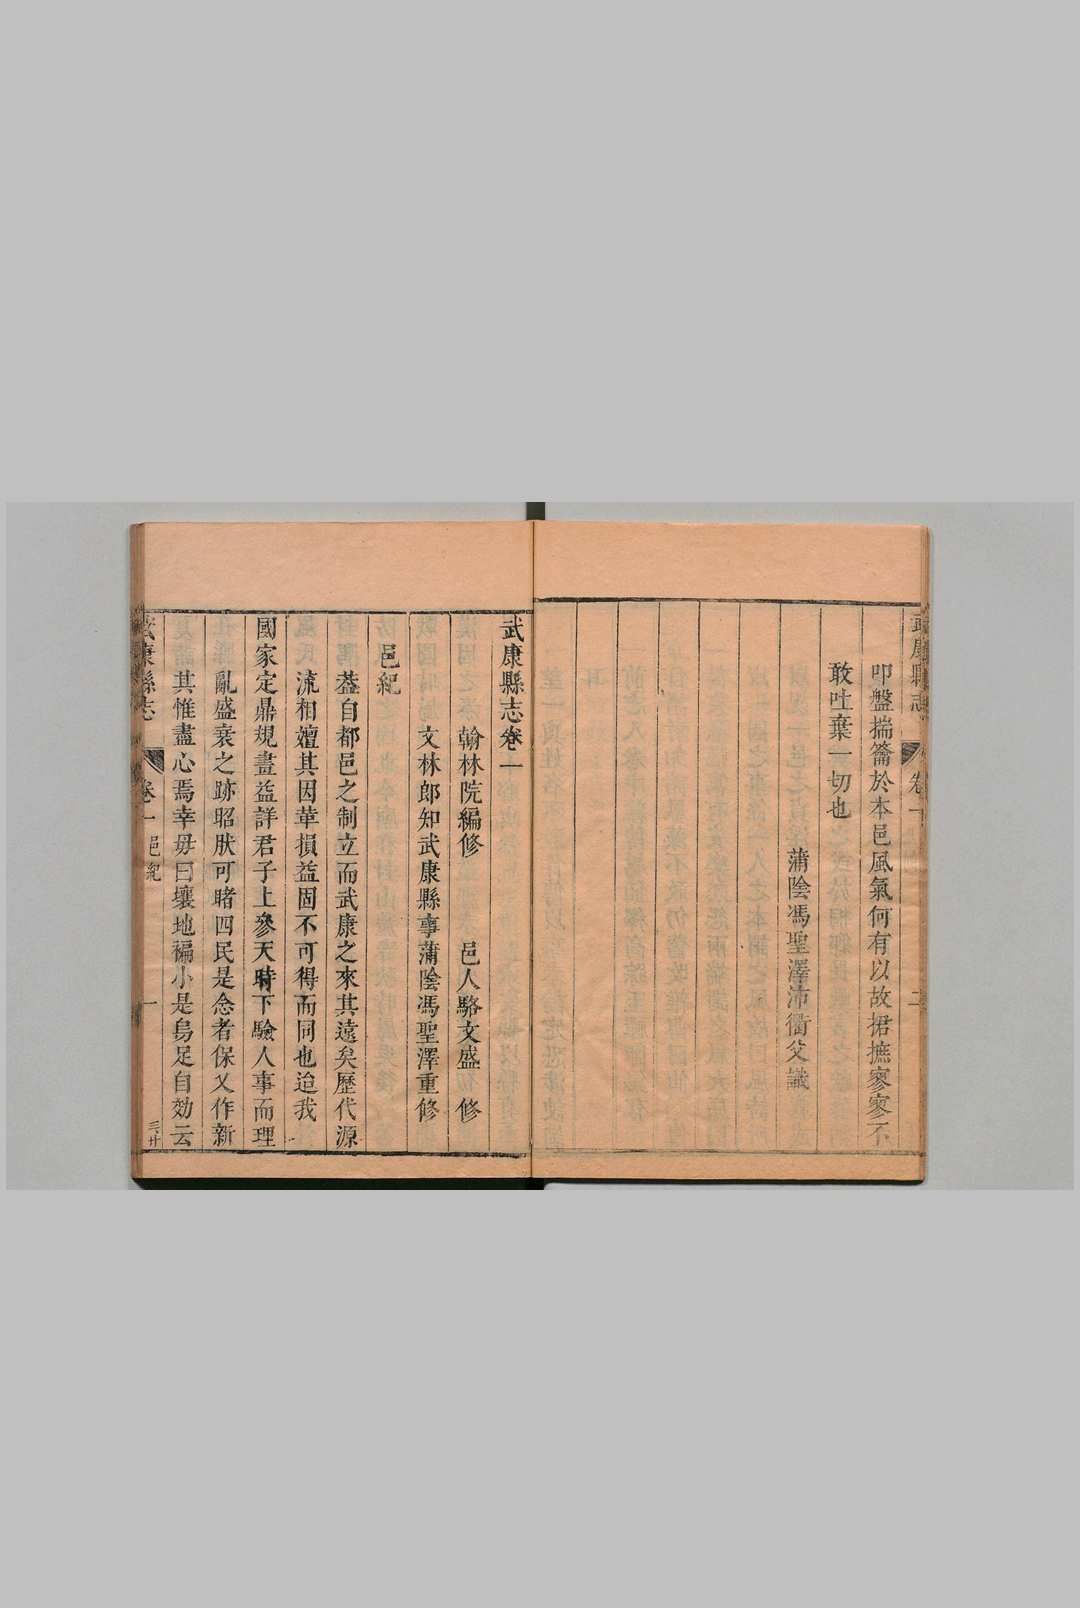 武康縣志
卷一
二
叩盤揣籥於本邑風氣何有以故捃摭寥寥不
敢吐棄一切也
蒲陰馮聖澤沛衢父識
武康縣志卷一
翰林院編修 邑人駱文盛 修
文林郎知武康縣事蒲陰馮聖澤重修
邑紀
葢自都邑之制立而武康之來其遠矣歷代源
流相嬗其因革損益固不可得而同也迨我
國家定鼎規畫益詳君子上參天時下驗人事而理
亂盛衰之跡昭肰可睹四民是念者保乂作新
其惟盡心焉幸毋曰壤地褊小是烏足自効云
武康縣志
卷一
邑紀
一